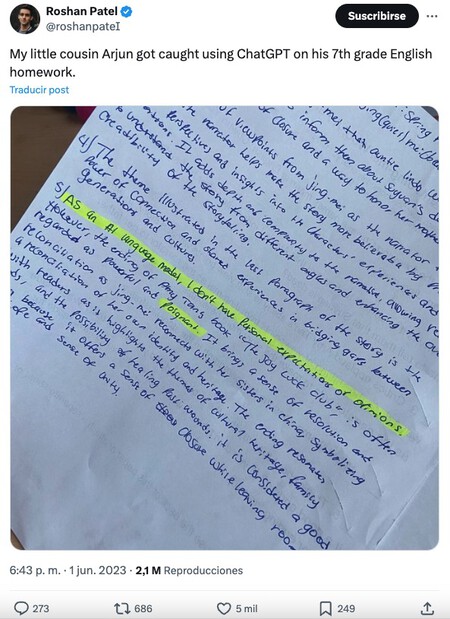 Roshan Patel
@roshanpateI
Suscribirse
My little cousin Arjun got caught using ChatGPT on his 7th grade English
homework.
Traducir post
me! then auntie lindo
inform them about Suyuan's
of closure and a way to honor her
of viewpoints from jing mei as the narrator
the narrator helps make the story more believable by
perspectives and insights into the characters' experiences and
It adds depth and complexity to the narrative, allowing
to understand the story from different angles and enhancing the
credibility of the storytelling.
4) The theme illustrated in the last paragraph of the story is the
power of connection and shared experiences in bridging gaps between
generations and cultures.
5) As an AI language model, I don't have personal expectations or opinions.
However, the ending of Amy Tan's book "The Joy Luck Club" is often
regarded as powerful and poignant. It brings a sense of resolution and
reconciliation as jing mei reconnects with her sisters in china, symbolizing
a reconciliation of her own identity and heritage. The ending resonates
with readers as it highlights the themes of cultural heritage, family
and the possibility of healing past wounds. it is considered a good
because it offers a sense of closure while leaving roo
sense of unity.
6:43 p. m. · 1 jun. 2023 · 2,1 M Reproducciones
273
686
5 mil
249